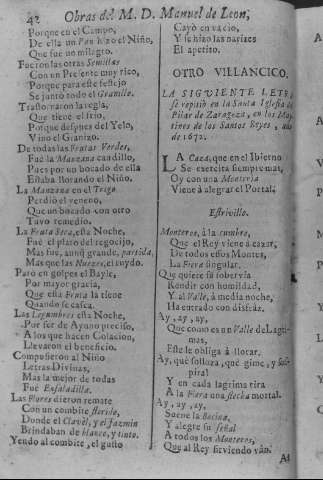 42 Obras del M. D. Manuel de Leon,
Porque en el Campo,
De ella un Pan hizo el Niño,
Que fue un milagro.
Fueron las otras Semillas
Con un Presente muy rico,
Porque para este festejo
Se juntò todo el Granillo.
Trastornaron la regla,
Que tiene el frio,
Porque despues del Yelo,
Vino el Granizo.
De todas las Frutas Verdes,
Fuè la Manzana caudillo,
Pues por un bocado de ella
Estaba llorando el Niño.
La Manzana en el Trigo
Perdiò el veneno,
Que un bocado con otro
Tuvo remedio.
La Fruta Seca, esta Noche,
Fuè el plato del regocijo,
Mas fue, aunq̃ grande, partida,
Mas que las Nuezes, el ruydo.
Parò en golpes el Bayle,
Por mayor gracia,
Que esta Fruta la tiene
Quando se casca.
Las Legumbres esta Noche,
Por ser de Ayuno preciso,
A los que hacen Colacion,
Llevaron el beneficio.
Compusieron al Niño
Letras Divinas,
Mas la mejor de todas
Fuè Ensaladilla.
Las Flores dieron remate
Con un combite florido,
Donde el Clavèl, y el Jazmin
Brindaban de blanco, y tinto.
Yendo al combite, el gusto
Cayò en vacio,
Y se hizo las narizes
El apetito.
OTRO VILLANCICO.
LA SIGUIENTE LETRA,
se repitiò en la Santa Iglesia del
Pilar de Zaragoza, en los May-
tines de los Santos Reyes, año
de 1672.
LA Caza, que en el Ibierno
Se exercita siempre mas,
Oy con una Monterìa
Viene à alegrar el Portal.
Estrivillo.
Monteros, à la cumbre,
Que el Rey viene à cazar,
De todos essos Montes,
La Fiera singular.
Que quiere su sobervia
Rendir con humildad,
Y al Valle, à media noche,
Ha entrado con disfràz.
Ay, ay, ay,
Que como es un Valle de Lagri-
mas,
Este le obliga à llorar.
Ay, què solloza, què gime, y sus-
pira!
Y en cada lagrima tira
A la Fiera una flecha mortal.
Ay, ay, ay,
Suene la Bocina,
Y alegre su señal
A todos los Monteros,
Que al Rey sirviendo vàn.